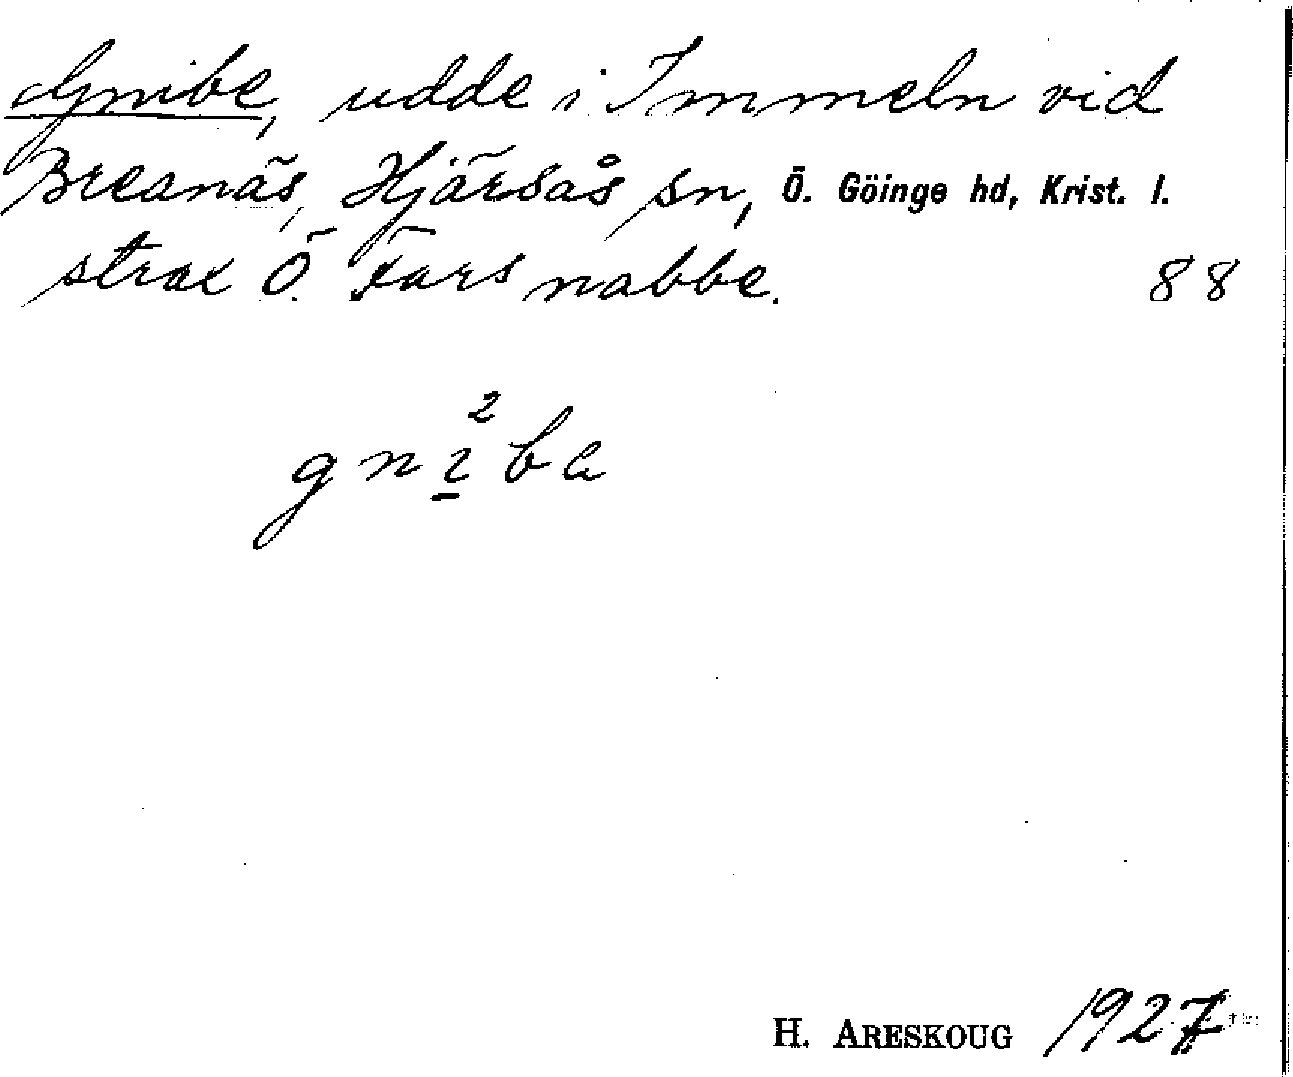 Gnibe, udde i Immeln vid
Breanäs, Hjärsås sn, Ö. Göinge hd, Krist. l.
strax Ö. Fars nabbe. 88
2
gnıba
H. ARESKOUG 1927